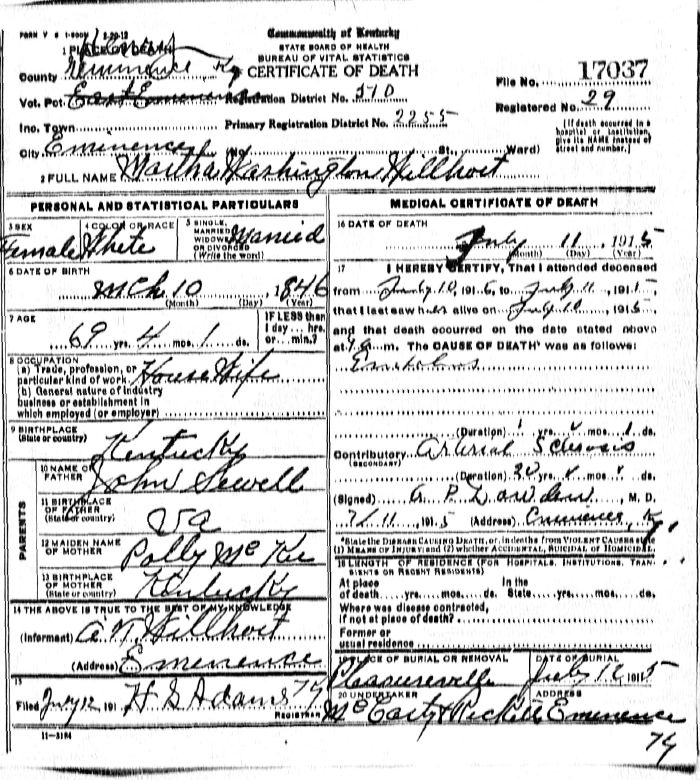 FORM V S 1-500M 2-20-12
Commonwealth of Kentucky
STATE BOARD OF HEALTH
BUREAU OF VITAL STATISTICS
CERTIFICATE OF DEATH
1 PLACE OF DEATH Henry
County Eminence Ky
Vot. Pct East Eminence Registration District No. 510
File No. 17037
Inc. Town Primary Registration District No. 2255
Registered No. 29
City Eminence (No. St., Ward)
[If death occurred in a hospital or institution, give its NAME instead of street and number.]
2 FULL NAME Martha Washington Hillhoit
PERSONAL AND STATISTICAL PARTICULARS
3 SEX Female
4 COLOR OR RACE White
5 SINGLE, MARRIED, WIDOWED OR DIVORCED (Write the word) Married
6 DATE OF BIRTH
Mch 10 1846
(Month) (Day) (Year)
7 AGE
69 yrs. 4 mos. 1 ds.
IF LESS than 1 day... hrs. or... min.?
8 OCCUPATION
(a) Trade, profession, or particular kind of work House Wife
(b) General nature of industry business or establishment in which employed (or employer)
9 BIRTHPLACE (State or country) Kentucky
PARENTS
10 NAME OF FATHER John Sewell
11 BIRTHPLACE OF FATHER (State or country) Va
12 MAIDEN NAME OF MOTHER Polly McKee
13 BIRTHPLACE OF MOTHER (State or country) Kentucky
14 THE ABOVE IS TRUE TO THE BEST OF MY KNOWLEDGE
(Informant) Hillhoit
(Address) Eminence
15 Filed July 12 191 H S Adams
REGISTRAR
11-3184
MEDICAL CERTIFICATE OF DEATH
16 DATE OF DEATH
July 11, 1915
(Month) (Day) (Year)
17 I HEREBY CERTIFY, That I attended deceased
from July 10, 1915, to July 11, 1915
that I last saw her alive on July 10, 1915
and that death occurred on the date stated above
at m. The CAUSE OF DEATH* was as follows:
Embolus
(Duration) yrs. mos. 1 ds.
Contributory (SECONDARY) Arterial Sclerosis
(Duration) 20 yrs. mos. ds.
(Signed) A. P. Dowden, M. D.
7/11, 1915 (Address) Eminence Ky
*State the DISEASE CAUSING DEATH, or, in deaths from VIOLENT CAUSES, state (1) MEANS OF INJURY; and (2) whether ACCIDENTAL, SUICIDAL OR HOMICIDAL.
18 LENGTH OF RESIDENCE (FOR HOSPITALS, INSTITUTIONS, TRANSIENTS OR RECENT RESIDENTS)
At place of death yrs. mos. ds. In the State yrs. mos. ds.
Where was disease contracted, if not at place of death?
Former or usual residence
19 PLACE OF BURIAL OR REMOVAL Pleasureville
DATE OF BURIAL July 12 1915
20 UNDERTAKER McCarty & Rickett
ADDRESS Eminence
Ky